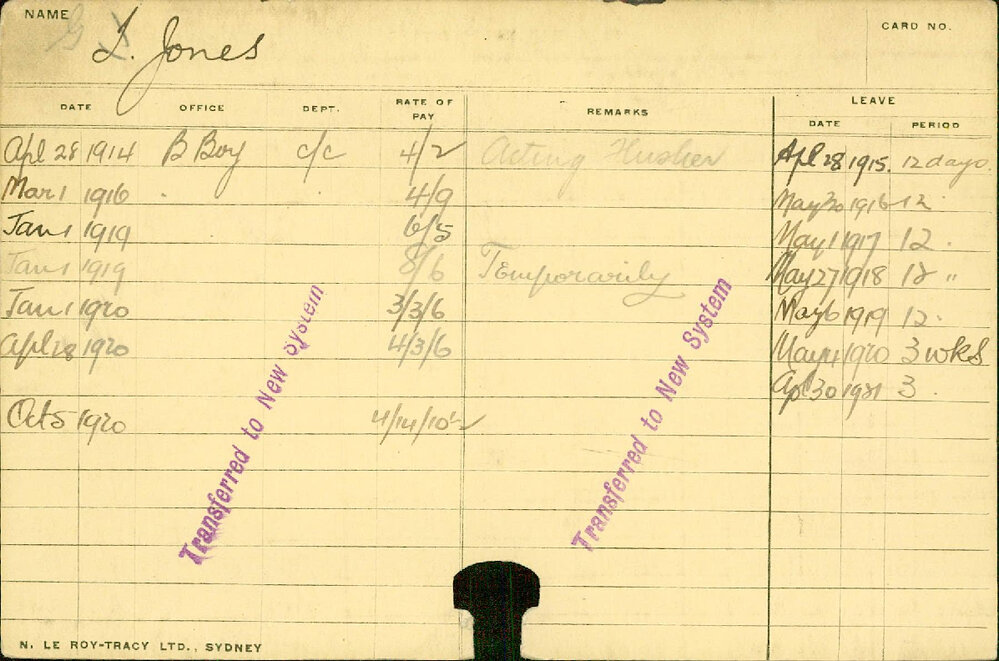 NAME
CARD NO.
L. Jones
DATE OFFICE DEPT. RATE OF PAY REMARKS LEAVE
DATE PERIOD
Apl 28 1914 B Boy c/c 4/2 Acting Husker Apl 28 1915. 12 days.
Mar 1 1916 4/9 May 30 1916 12
Jan 1 1919 6/5 May 1 1917 12
Jan 1 1919 8/6 Temporarily May 27 1918 12 "
Jan 1 1920 3/3/6 May 6 1919 12
Apl 28 1920 4/3/6 May 4 1920 3 wks
Ap 30 1921 3
Oct 5 1920 4/14/10½
Transferred to New System
Transferred to New System
N. LE ROY-TRACY LTD., SYDNEY